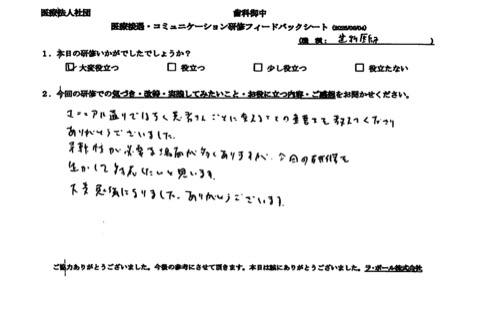 医療法人社団 歯科御中
医療接遇・コミュニケーション研修フィードバックシート (2025/06/04)
(職種: 歯科医師 )
1. 本日の研修いかがでしたでしょうか?
☑ 大変役立つ □ 役立つ □ 少し役立つ □ 役立たない
2. 今回の研修での気づき・改善・実践してみたいこと・お役に立つ内容・ご感想をお聞かせください。
マニュアル通りではなく患者さんごとに変えることの重要さも教えてくださり
ありがとうございました。
が必要な場面が多くありますが、今回の研修を
生かして対応したいと思います。
大変勉強になりました。ありがとうございます。
ご協力ありがとうございました。今後の参考にさせて頂きます。本日は誠にありがとうございました。ラ・ポール株式会社